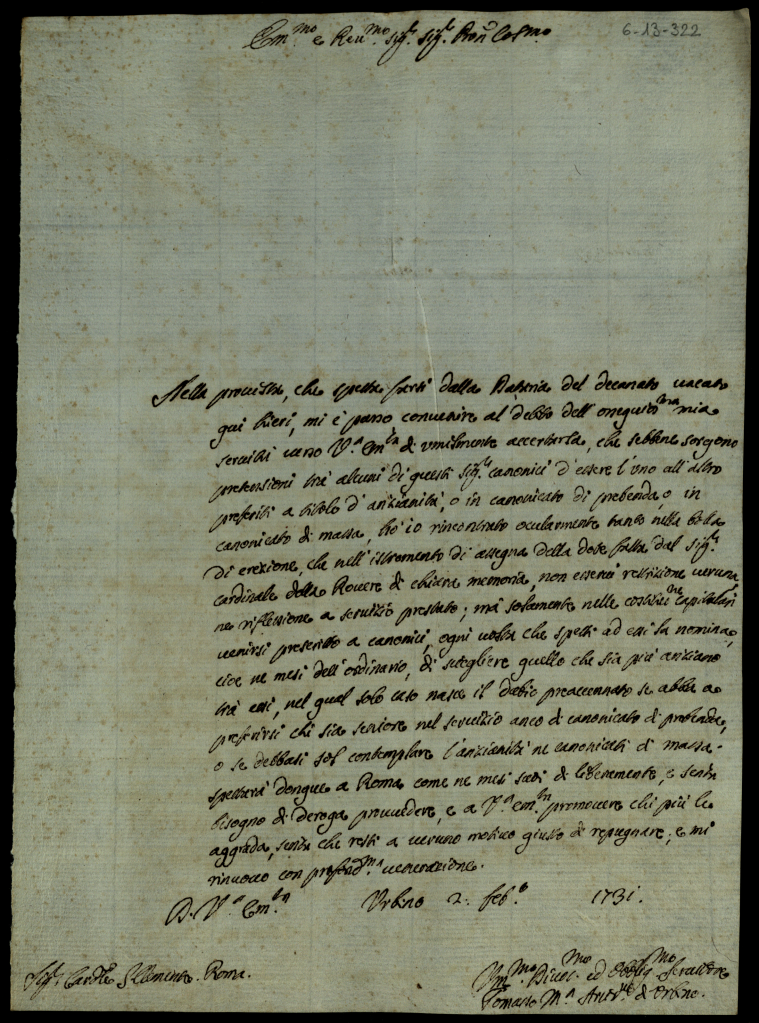 Em.mo e Rev.mo Sig.r Sig.r Pron Col.mo
6-13-322
Nella provista, che spetta farsi dalla Dataria del decanato vacato
qui hieri, mi è parso convenire al debbo dell'ossequios.ma mia
servitù verso V.a Em.za di umilmente accertarla, che sebbene sorgono
pretensioni trà alcuni di questi Sig.ri canonici d'essere l'uno all'altro
preferiti a titolo d'anzianità, o in canonicato di prebenda, o in
canonicato di massa, hò io rincontrato ocularmente tanto nella bolla
di erezione, che nell'istromento di assegna della dote fatta dal Sig.r
cardinale della Rovere di chiara memoria, non esservi restrizione veruna,
ne riflessione a servizio prestato; mà solamente nelle costituz.ne capitolari
venirsi prescritto a canonici, ogni volta che spetti ad essi la nomina,
cioè ne mesi dell'ordinario, di scegliere quello che sia più anziano
trà essi, nel qual solo caso nasce il dubio preaccennato se abbia a
preferirsi chi sia seniore nel servizio anco di canonicato di prebenda,
o se debbasi sol contemplare l'anzianità ne canonicati di massa.
spetterà donque a Roma come ne mesi suoi di liberamente, e senza
bisogno di deroga provvedere, e a V.a Em.za promovere chi più le
aggrada, senza che resti a veruno motivo giusto di repugnare; e mi
rinuovo con profond.ma venerazione.
D. V.a Em.za Urbino 2. feb.o 1731.
Sig.r Card.le S. Clemente. Roma.
Um.mo Divot.mo ed Obblig.mo Servitore
Tomasso M.a Arciv.o d'Urbino.